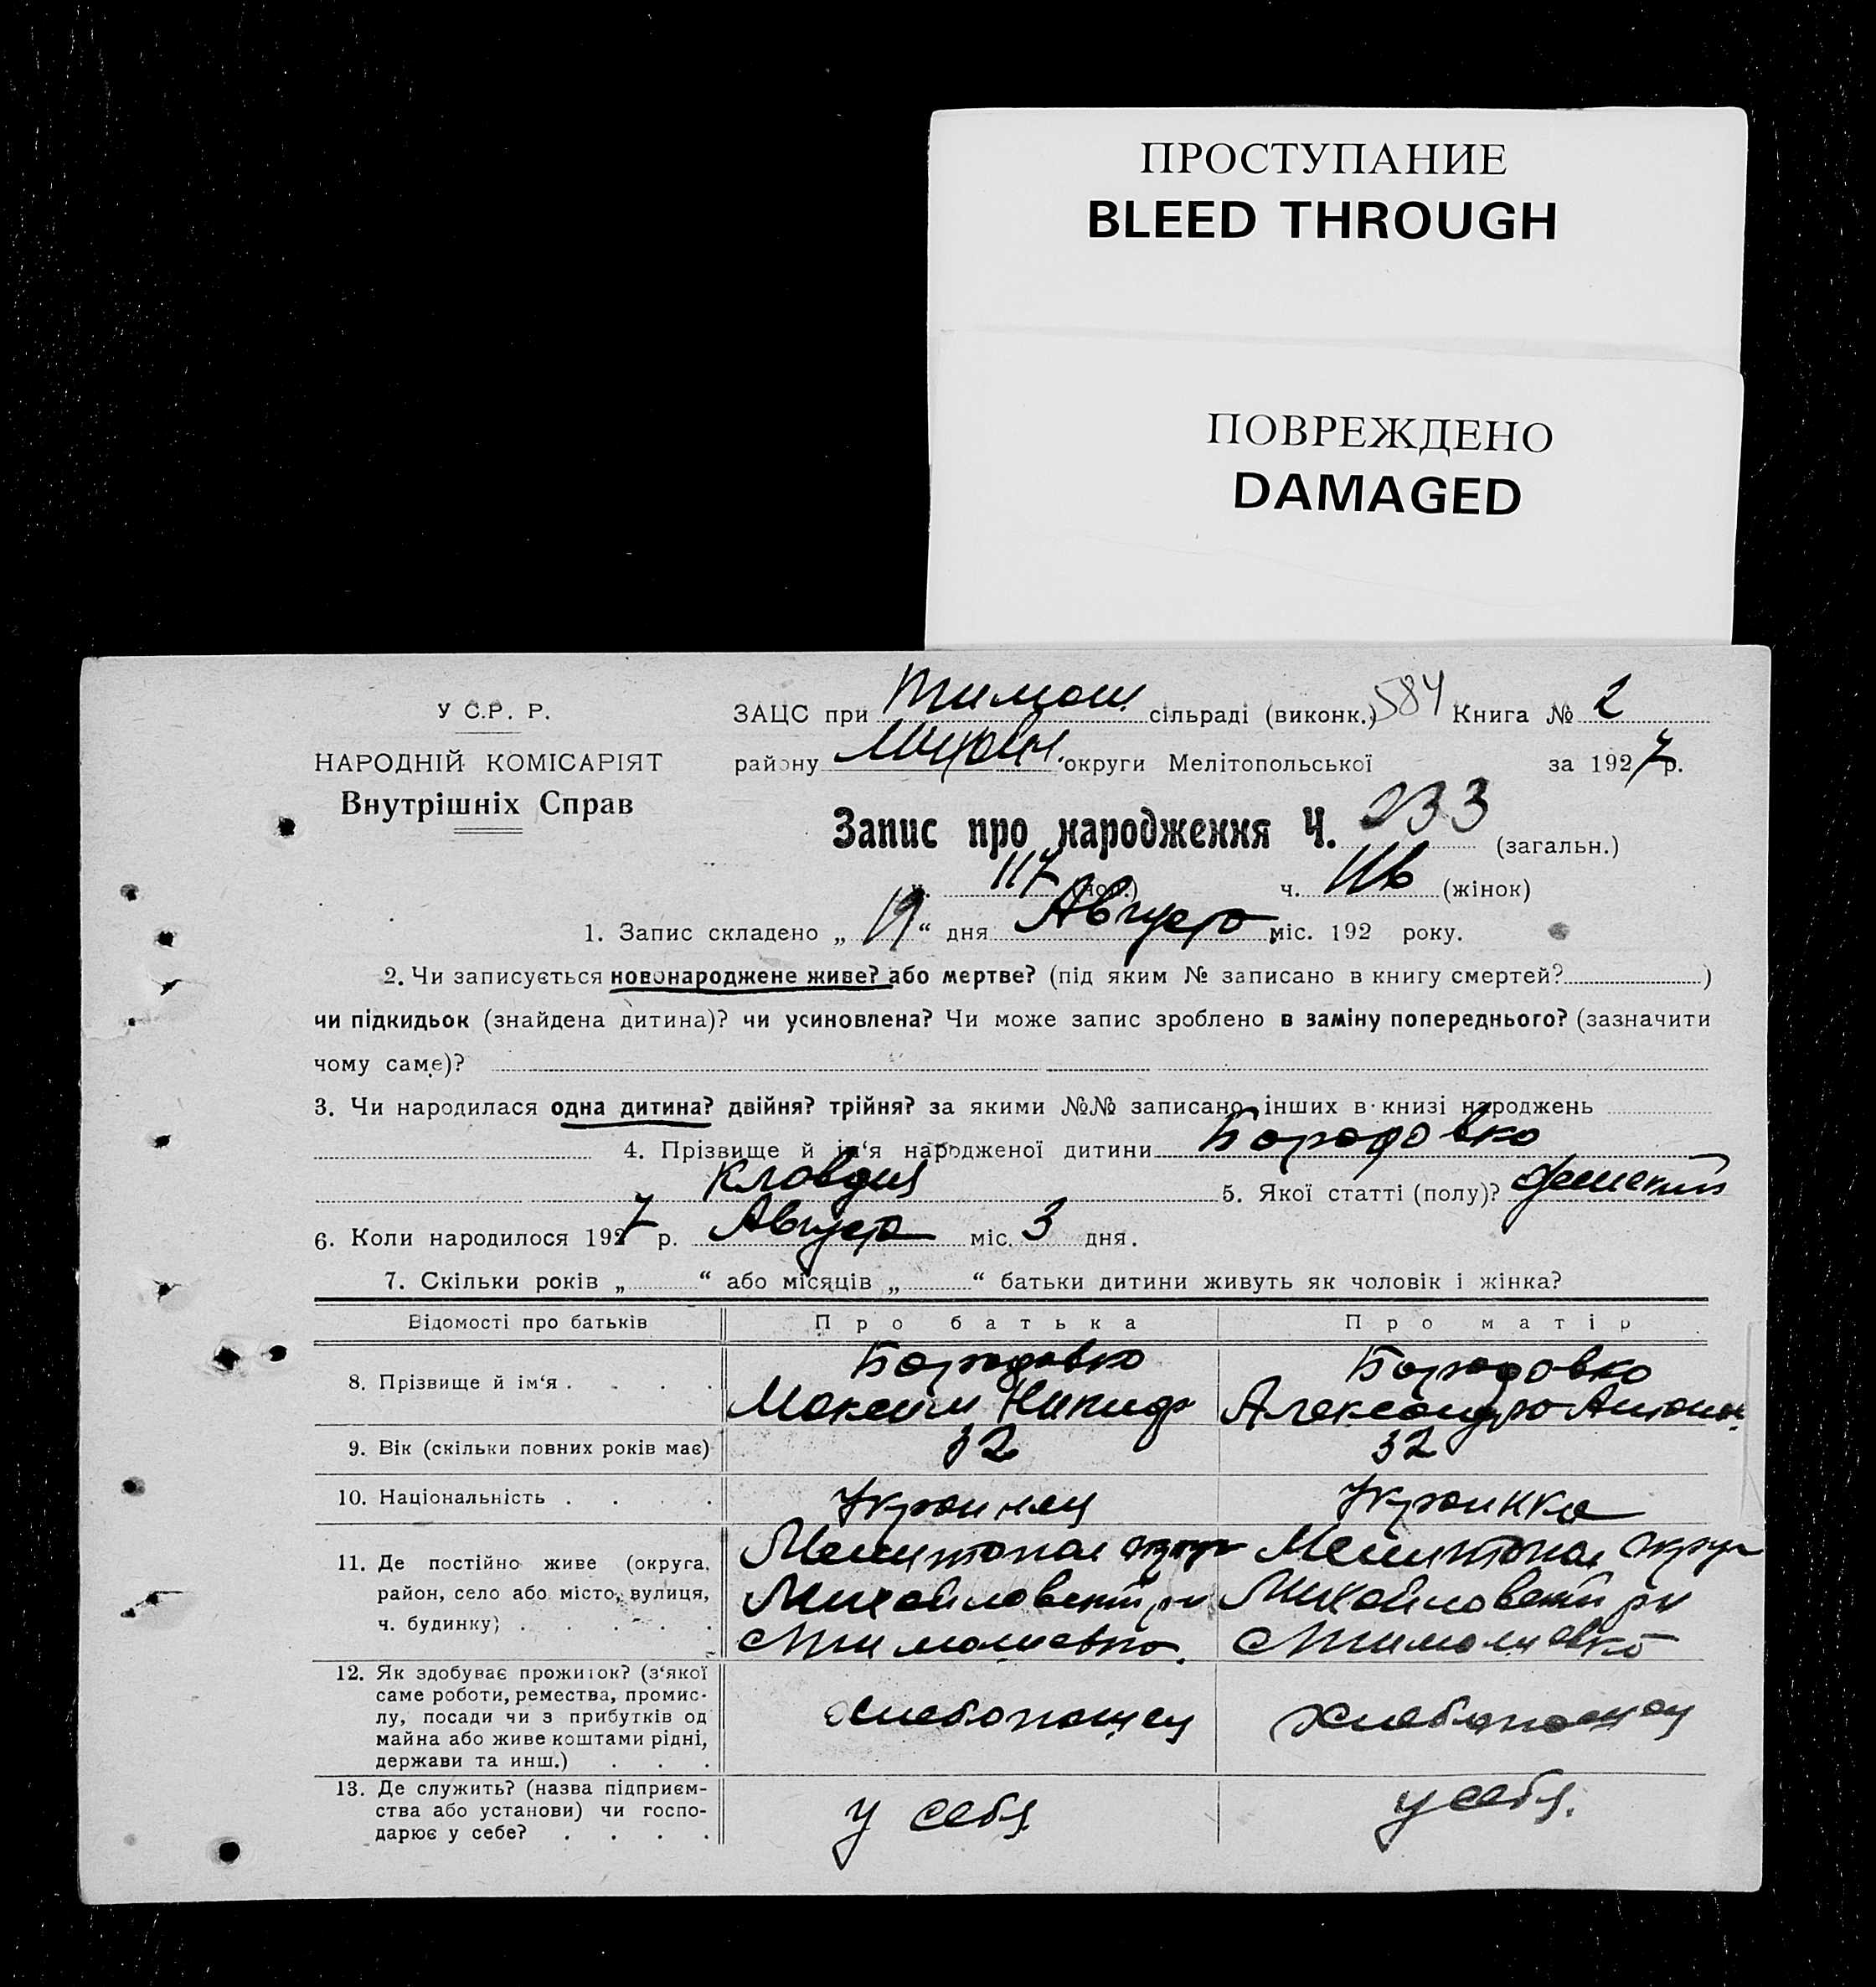 ПРОСТУПАНИЕ
BLEED THROUGH
ПОВРЕЖДЕНО
DAMAGED
У С.Р. Р.
НАРОДНІЙ КОМІСАРІЯТ
Внутрішніх Справ
ЗАЦС при Тимош. сільраді (виконк.) 584 Книга № 2
району Михайл. округи Мелітопольської за 1927 р.
Запис про народження Ч. 233 (загальн.)
ч. 117 (чол.) ч. 116 (жінок)
1. Запис складено „ 19 “ дня Августа міс. 192 року.
2. Чи записується новонароджене живе? або мертве? (під яким № записано в книгу смертей? )
чи підкидьок (знайдена дитина)? чи усиновлена? Чи може запис зроблено в заміну попереднього? (зазначити
чому саме)?
3. Чи народилася одна дитина? двійня? трійня? за якими №№ записано інших в книзі народжень
4. Прізвище й ім‘я народженої дитини Бородовко
Кловдия 5. Якої статті (полу)? женский
6. Коли народилося 1927 р. Августа міс. 3 дня.
7. Скільки років „ “ або місяців „ “ батьки дитини живуть як чоловік і жінка?
Відомості про батьків Про батька Про матір
8. Прізвище й ім‘я . . . . Бородовко Бородовко
Максим Никиф Александра Антон.
9. Вік (скільки повних років має) 32 32
10. Національність . . . . Украинец Украинка
11. Де постійно живе (округа, Мелитопол округ Мелитопол округ
район, село або місто, вулиця, Михайловский рн Михайловский рн
ч. будинку) . . . . . с Тимошевка. с Тимошевка
12. Як здобуває прожиток? (з‘якої
саме роботи, ремества, промис-
лу, посади чи з прибутків од хлебопашец хлебопашец
майна або живе коштами рідні,
держави та инш.) . . .
13. Де служить? (назва підприєм-
ства або установи) чи госпо- у себя у себя.
дарює у себе? . . . .